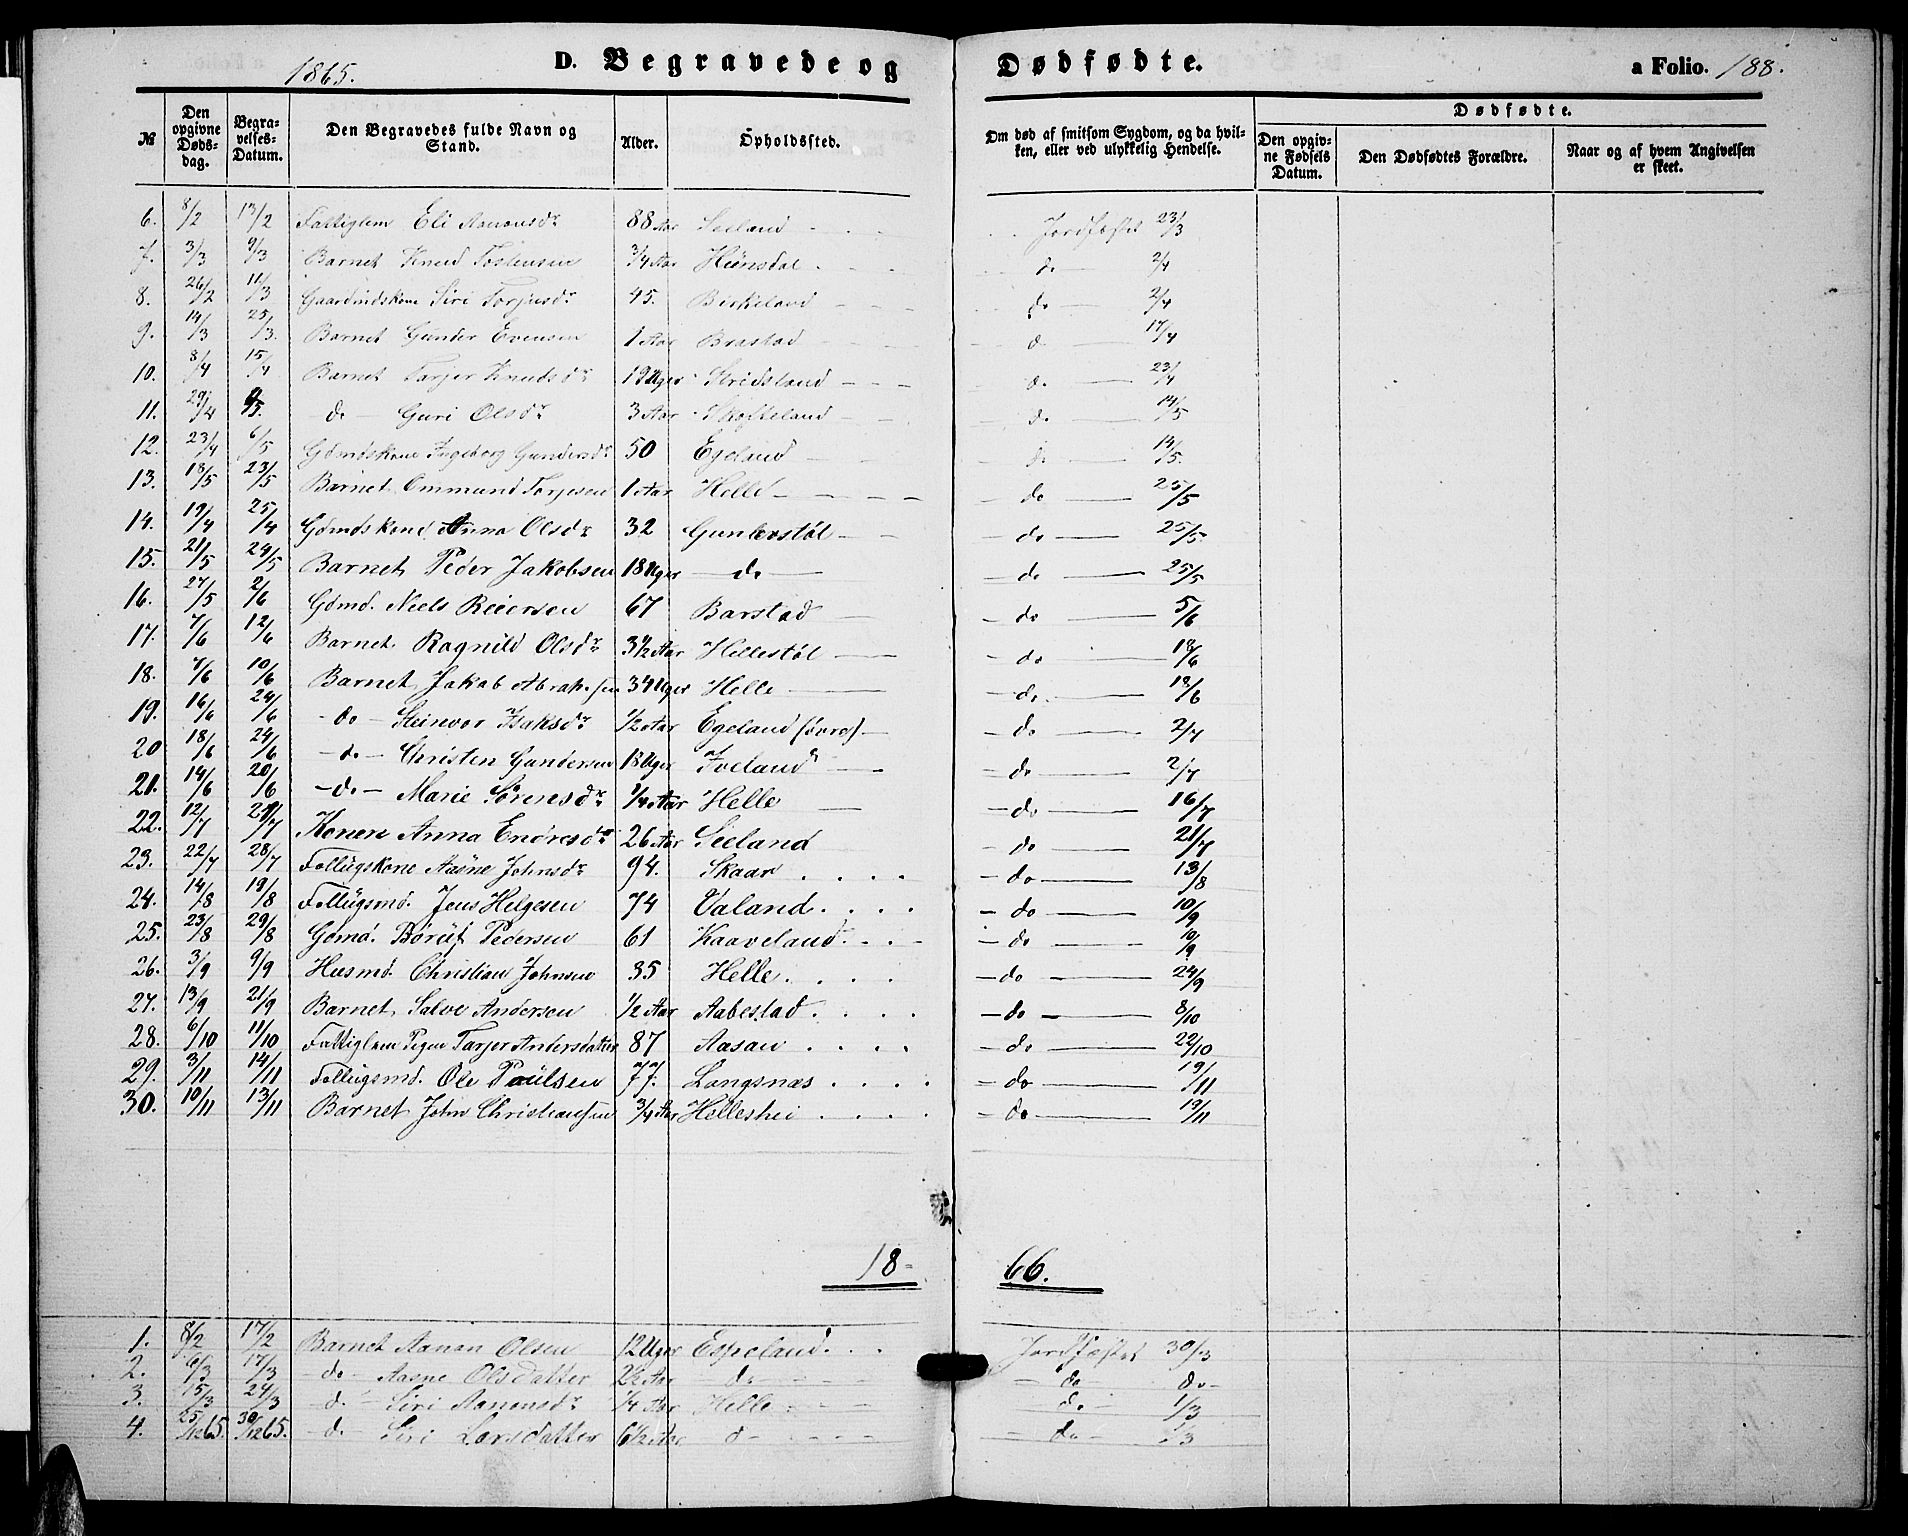 1865.
D. Begravede og Dødfødte.
a Folio. 188.
№ | Den opgivne Døds-dag. | Begra-velses-Datum. | Den Begravedes fulde Navn og Stand. | Alder. | Opholdsted. | Om død af smitsom Sygdom, og da hvil-ken, eller ved ulykkelig Hendelse. | Dødfødte. | Den opgiv-ne Fødsels Datum. | Den Dødfødtes Forældre. | Naar og af hvem Angivelsen er skeet.
6. 8/2 13/2 Fattiglem Eli Aanonsdr 88 Aar Seeland Jordfæstet 23/3
7. 3/3 9/3 Barnet Knud Tostensen 3/4 Aar Hünsdal do 2/4
8. 26/2 11/3 Gaardmdskone Siri Torjusdr 45. Birkeland do 2/4
9. 14/3 25/3. Barnet Gunder Evensen 1 Aar Brastad d. 17/4
10. 8/4 15/4 Barnet Tarjer Knudsdr 19 Uger Skridsland d. 23/4
11. 29/4 6/5. do Guri Olsdr 3 Aar Skofteland do 14/5
12. 23/4 6/5 Gdmdskone Ingeborg Gundersdr 50 Egeland do 14/5.
13. 18/5 23/5 Barnet Ommund Torjesen 1 Aar Helle do 25/5
14. 19/4 25/4 Gdmdskone Anna Olsdr 32 Gunlerstøl do 25/5.
15. 21/5 24/5 Barnet Peder Jakobsen 18 Uger do do 25/5
16. 27/5 2/6 Gdmd. Niels Reiersen 67 Barstad do 5/6
17. 7/6 12/6 Barnet Ragnild Olsdr 3 1/2 Aar Hellestøl do 18/6
18. 7/6 10/6 Barnet Jakob Abrah.sen 34 Uger Helle do. 18/6
19. 16/6 24/6 do Steinvor Isaksdr 1/2 Aar Egeland (øvre) do 2/7
20 18/6 24/6 do Christen Gundersen 18 Uger Iveland do 2/7
21. 14/6 20/6 do Marie Sørensdr 1/4 Aar Helle do 16/7
22. 12/7 21/7 Konen Anna Endresdr 26 Aar Seeland do 21/7
23. 22/7 28/7 Follügskone Aasne Johnsdr 94. Skaar do 13/8
24. 14/8 19/8 Follügsmd. Jens Helgesen 74 Valand do 10/9
25. 23/8 29/8 Gdmd. Børüf Pedersen 61 Kaaveland do 10/9
26. 3/9 9/9 Husmd. Christian Johnsen 35 Helle do 24/9
27. 13/9 21/9 Barnet Salve Andersen 1/2 Aar Aabestad do 8/10
28. 6/10 11/10 Fattiglem Pigen Tarjer Andersdatter 87 Aasan do 22/10
29. 3/11 14/11 Follügsmd. Ole Paulsen 77. Langsnæs do 19/11
30. 10/11 13/11 Barnet John Christiansen 3/4 Aar Helleshei do 19/11
18-66.
1. 8/2 17/2 Barnet Aanon Olsen 12 Uger Espeland Jordfæstet 30/3
2. 6/3 17/3 do Aasne Olsdatter 2 1/2 Aar do do do
3. 15/3 24/3 d. Siri Aanonsdr 1/4 Aar Helle do 1/3
4. 25/12 65. 30/12 65. d. Siri Larsdatter 6 1/2 Aar d do 1/3